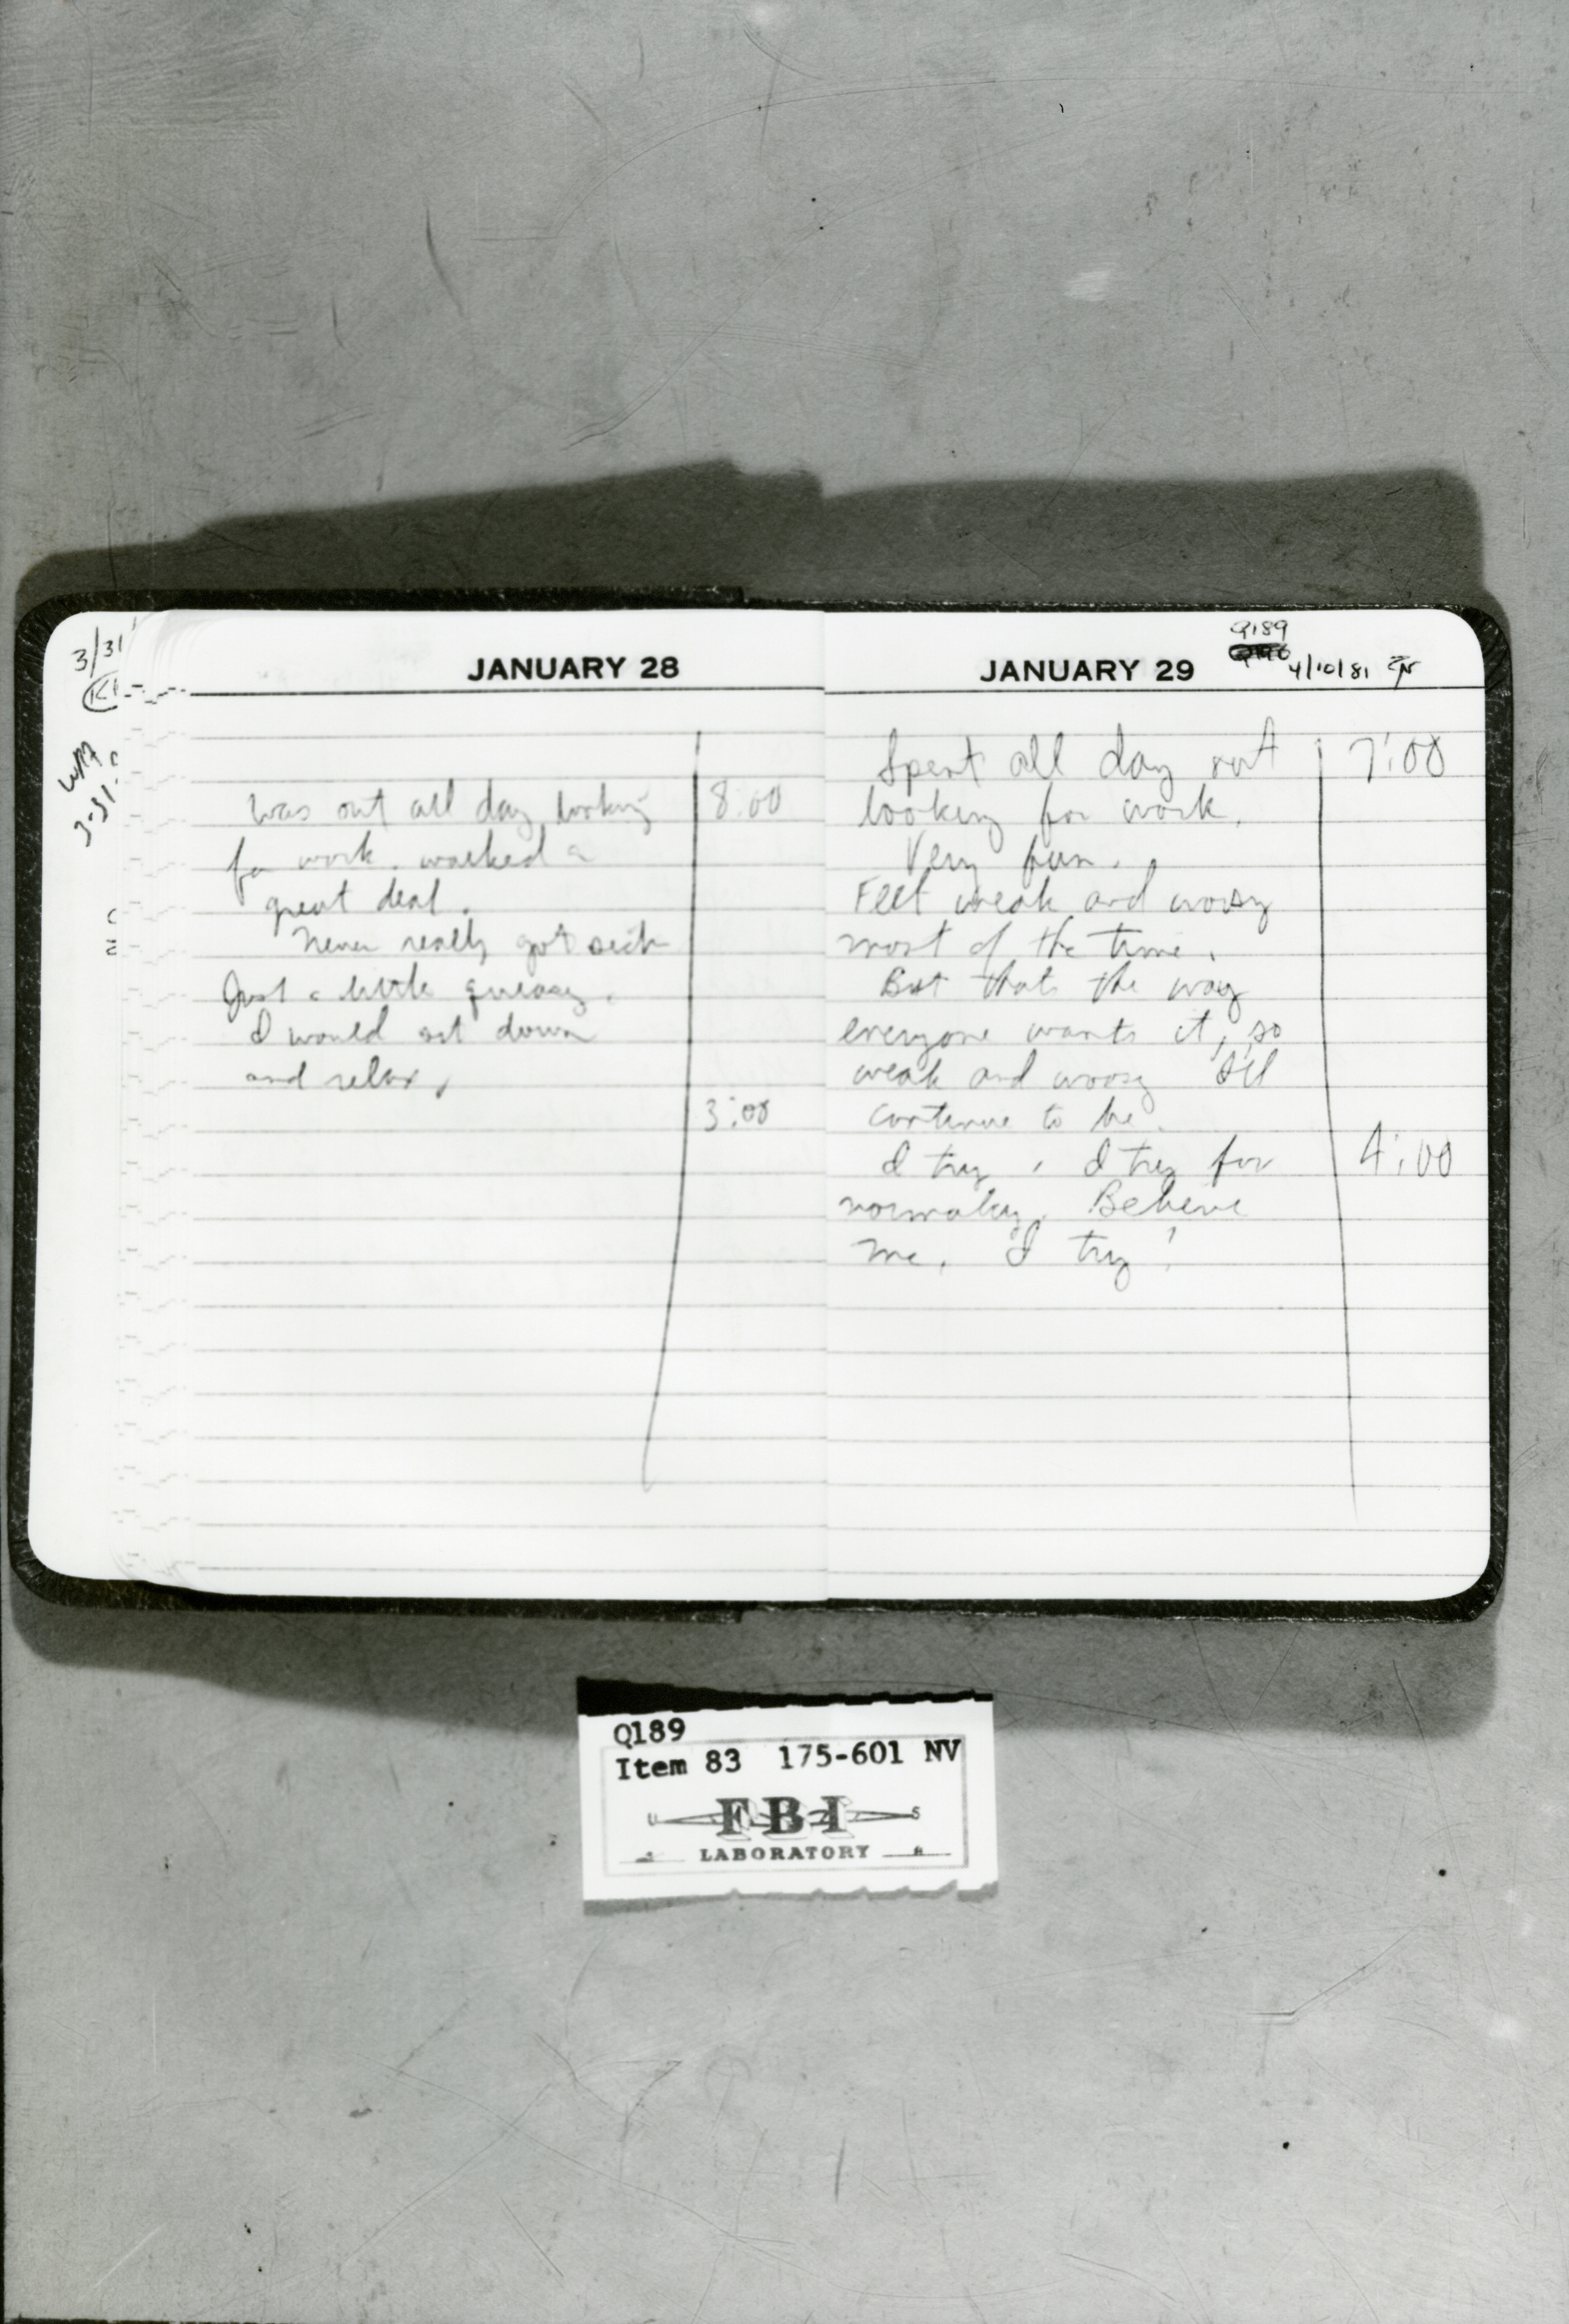 3/31
WM
3-31
JANUARY 28
was out all day looking
8:00
for work. walked a
great deal.
Never really got sick
Just a little queasy.
I would sit down
and relax,
3:00
JANUARY 29
Q189
4/10/81
Spent all day out
7:00
looking for work.
Very fun.
Felt weak and woosy
most of the time.
But thats the way
everyone wants it, so
weak and woosy I'll
continue to be.
I try, I try for
4:00
normalcy. Believe
me, I try!
Q189
Item 83 175-601 NV
U S
FBI
LABORATORY